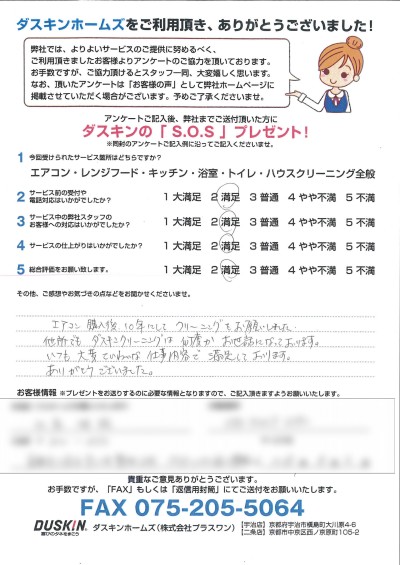 ダスキンホームズをご利用頂き、ありがとうございました！
弊社では、よりよいサービスのご提供に努めるべく、
ご利用頂きましたお客様よりアンケートのご協力を頂いております。
お手数ですが、ご協力頂けるとスタッフ一同、大変嬉しく思います。
なお、頂いたアンケートは「お客様の声」として弊社ホームページに
掲載させていただく場合がございます。予めご了承くださいませ。
アンケートご記入後、弊社までご送付頂いた方に
ダスキンの「S.O.S」プレゼント！
※同封のアンケートご記入例に沿ってご記入くださいませ。
1 今回受けられたサービス箇所はどちらですか？
エアコン・レンジフード・キッチン・浴室・トイレ・ハウスクリーニング全般
2 サービス前の受付や
電話対応はいかがでしたか？ 1 大満足 2 満足 3 普通 4 やや不満 5 不満
3 サービス中の弊社スタッフの
お客様への対応はいかがでしたか？ 1 大満足 2 満足 3 普通 4 やや不満 5 不満
4 サービスの仕上がりはいかがでしたか？ 1 大満足 2 満足 3 普通 4 やや不満 5 不満
5 総合評価をお願い致します。 1 大満足 2 満足 3 普通 4 やや不満 5 不満
その他、ご感想やお気づきの点などをお聞かせくださいませ。
エアコン購入後 10年にして クリーニングをお願いしました。
他所でも ダスキンクリーニングは 何度か お世話になっております。
いつも 大変ていねいな 仕事内容で 満足しております。
ありがとうございました。
お客様情報 ※プレゼントをお送りするのに必要な情報となりますので、ご記入頂きますようお願いいたします。
貴重なご意見ありがとうございます。
お手数ですが、「FAX」もしくは「返信用封筒」にてご送付をお願いいたします。
FAX 075-205-5064
DUSKIN 喜びのタネをまこう ダスキンホームズ（株式会社プラスワン） 【宇治店】京都府宇治市槇島町大川原4-6
【二条店】京都市中京区西ノ京原町105-2